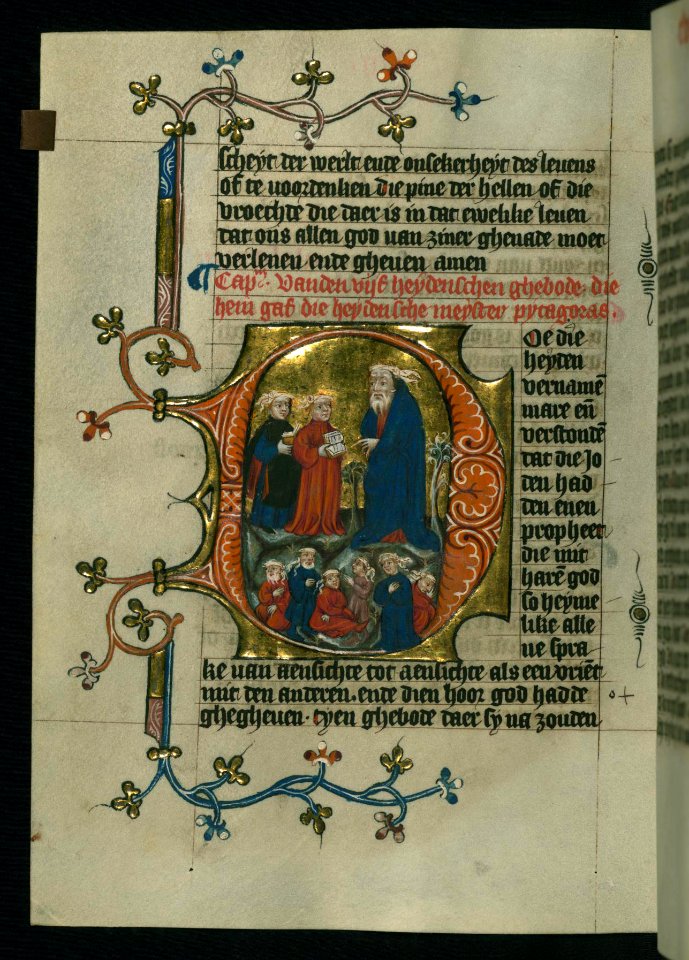 scheyt der werlt ende onsekerheyt des levens
of te voordenken die pine der hellen of die
vroechte die daer is in dat ewelike leven
dat ons allen god van ziner ghenade moet
verlenen ende gheven amen
Capᵐ. Vanden vijf heydenschen ghebode. die
hem gaf die heydensche meyster pytagoras.
Doe die
heyden
vernamē
mare eñ
verstondē
dat die Jo
den had
den enen
propheet
die mit
harē god
so heyme
like alle
ne spra
ke van aensichte tot aensichte als een vriēt
mit den anderen. ende dien hoor god hadde
ghegheven. tyen ghebode daer sy na zouden